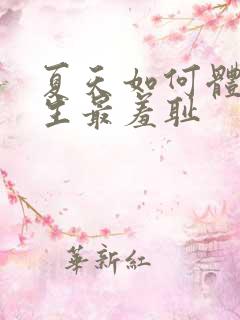 夏天如何體
生最羞耻
華新紅